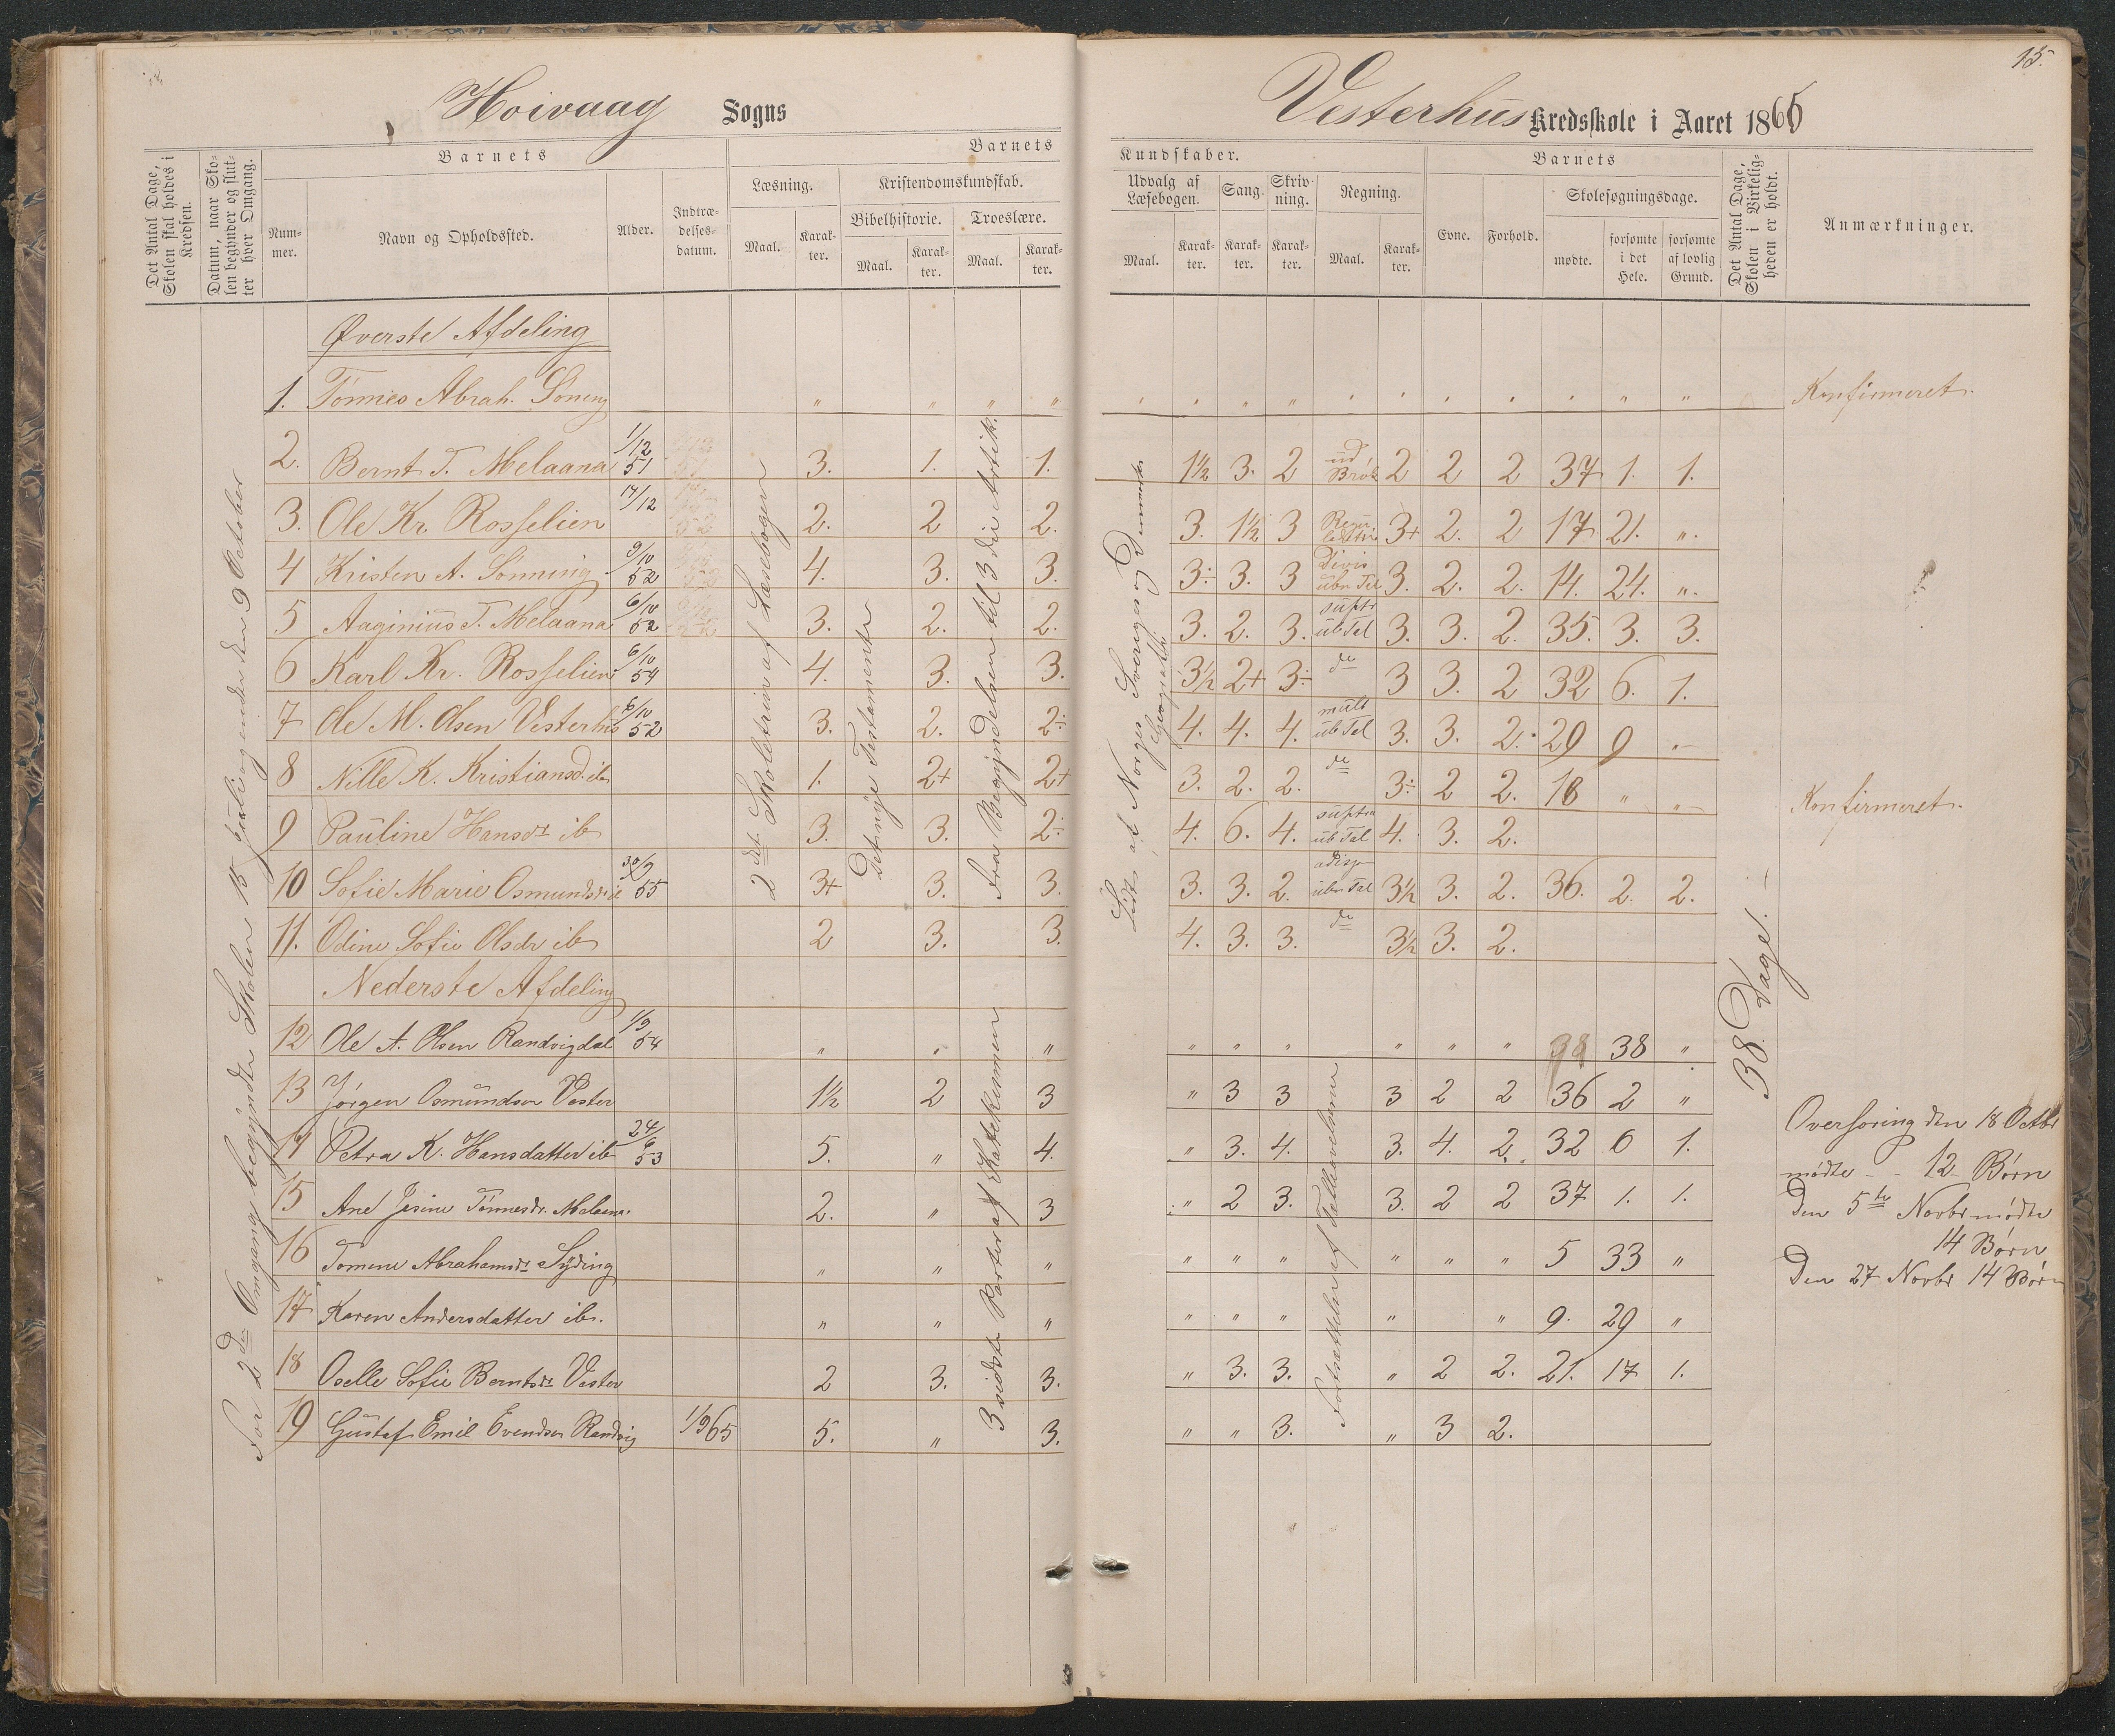 Hoivaag Sogns
Vesterhus Kredsskole i Aaret 1865
15.
Det Antal Dage, Skolen skal holdes i Kredsen.
Datum, naar Skolen begynder og slutter hver Omgang.
Barnets
Nummer.
Navn og Opholdssted.
Alder.
Indtrædelsesdatum.
Barnets
Læsning.
Maal.
Karakter.
Kristendomskundskab.
Bibelhistorie.
Maal.
Karakter.
Troeslære.
Maal.
Karakter.
Kundskaber.
Udvalg af Læsebogen.
Maal.
Karakter.
Sang.
Karakter.
Skrivning.
Karakter.
Regning.
Maal.
Karakter.
Barnets
Evne.
Forhold.
Skolesøgningsdage.
mødte.
forsømte i det Hele.
forsømte af lovlig Grund.
Det Antal Dage, Skolen i Virkeligheden er holdt.
Anmærkninger.
For 2den Omgang begyndte Skolen
den 9 October
2det Skoletrin af Læsebogen
Det nye Testamente
Fra Begyndelsen til 3die Artik.
3 sidste Parter af Katekismen
Lidt af Norges Sveriges og Danmarks Geografi
38 Dage. –
Øverste Afdeling
1. Tönnes Abrah. Söning " " " " Konfirmeret.
2. Bernt T. Melaana 1/12 51 3. 1. 1. 1½ 3. 2 ud Brök 2 2 2 37 1. 1.
3. Ole Kr Rosselien 17/12 2. 2 2. 3. 1½ 3 3+ 2. 2 17 21. ".
4 Kristen A. Sönning 9/10 52 4. 3. 3. 3: 3. 3 Divis ubn Tel 3. 2. 2. 14. 24. ".
5 Aaginius T. Melaana 6/10 52 3. 2. 2. 3. 2. 3. suptr ub Tel 3. 3. 2. 35. 3. 3.
6 Karl Kr. Rosselien 6/10 54 4. 3. 3. 3½ 2+ 3÷ do 3 3. 2 32 6. 1.
7 Ole M. Olsen Vesterhus 6/10 52 3. 2. 2÷ 4. 4. 4. mult ub Tel 3. 3. 2. 29 9 "
8 Nille K. Kristiansd. ib 1. 2+ 2+ 3. 2. 2. do 3÷ 2 2. 18 " " Konfirmeret.
9 Pauline Hansdr ib 3. 3. 2÷ 4. 6. 4. suptra ub Tal 4. 3. 2.
10 Sofie Marie Osmundsdr ib 30/9 55 3+ 3. 3. 3. 3. 2. ubn Tal 3½ 3. 2. 36. 2. 2.
11. Odine Sofie Olsdr ib 2 3. 3. 4. 3. 3. do 3½ 3. 2.
Nederste Afdeling
12 Ole A. Olsen Randvigdal 1/9 54 " " " " " " " " " 38 38 "
13 Jörgen Osmundsen Vester 1½ 2 3 " 3 3 3 2 2 36 2 "
14 Petra K. Hansdatter ib 24/6 53 5. " 4. " 3. 4. 3. 4. 2. 32 6 1.
15 Ane Jesine Tönnesdr. Melaana. 2. " 3 " 2 3. 3. 2 2 37 1. 1.
16 Tomine Abrahamsdr Syding " " " " " " " " " 5 33 "
17 Karen Andersdatter ib. " " " " " " " " 9. 29 "
18 Oselle Sofie Berntsdr Vester 2 3. 3. " 3. 3. " 2 2. 21. 17 1.
19 Gustaf Emil Evendsen Randvig 1/9 65 5. " 3. " " 3. " 3 2.
Overhøring den 18 Octbr
mödte – 12 Börn
Den 5te Novbr mödte
14 Börn
Den 27 Novbr 14 Börn